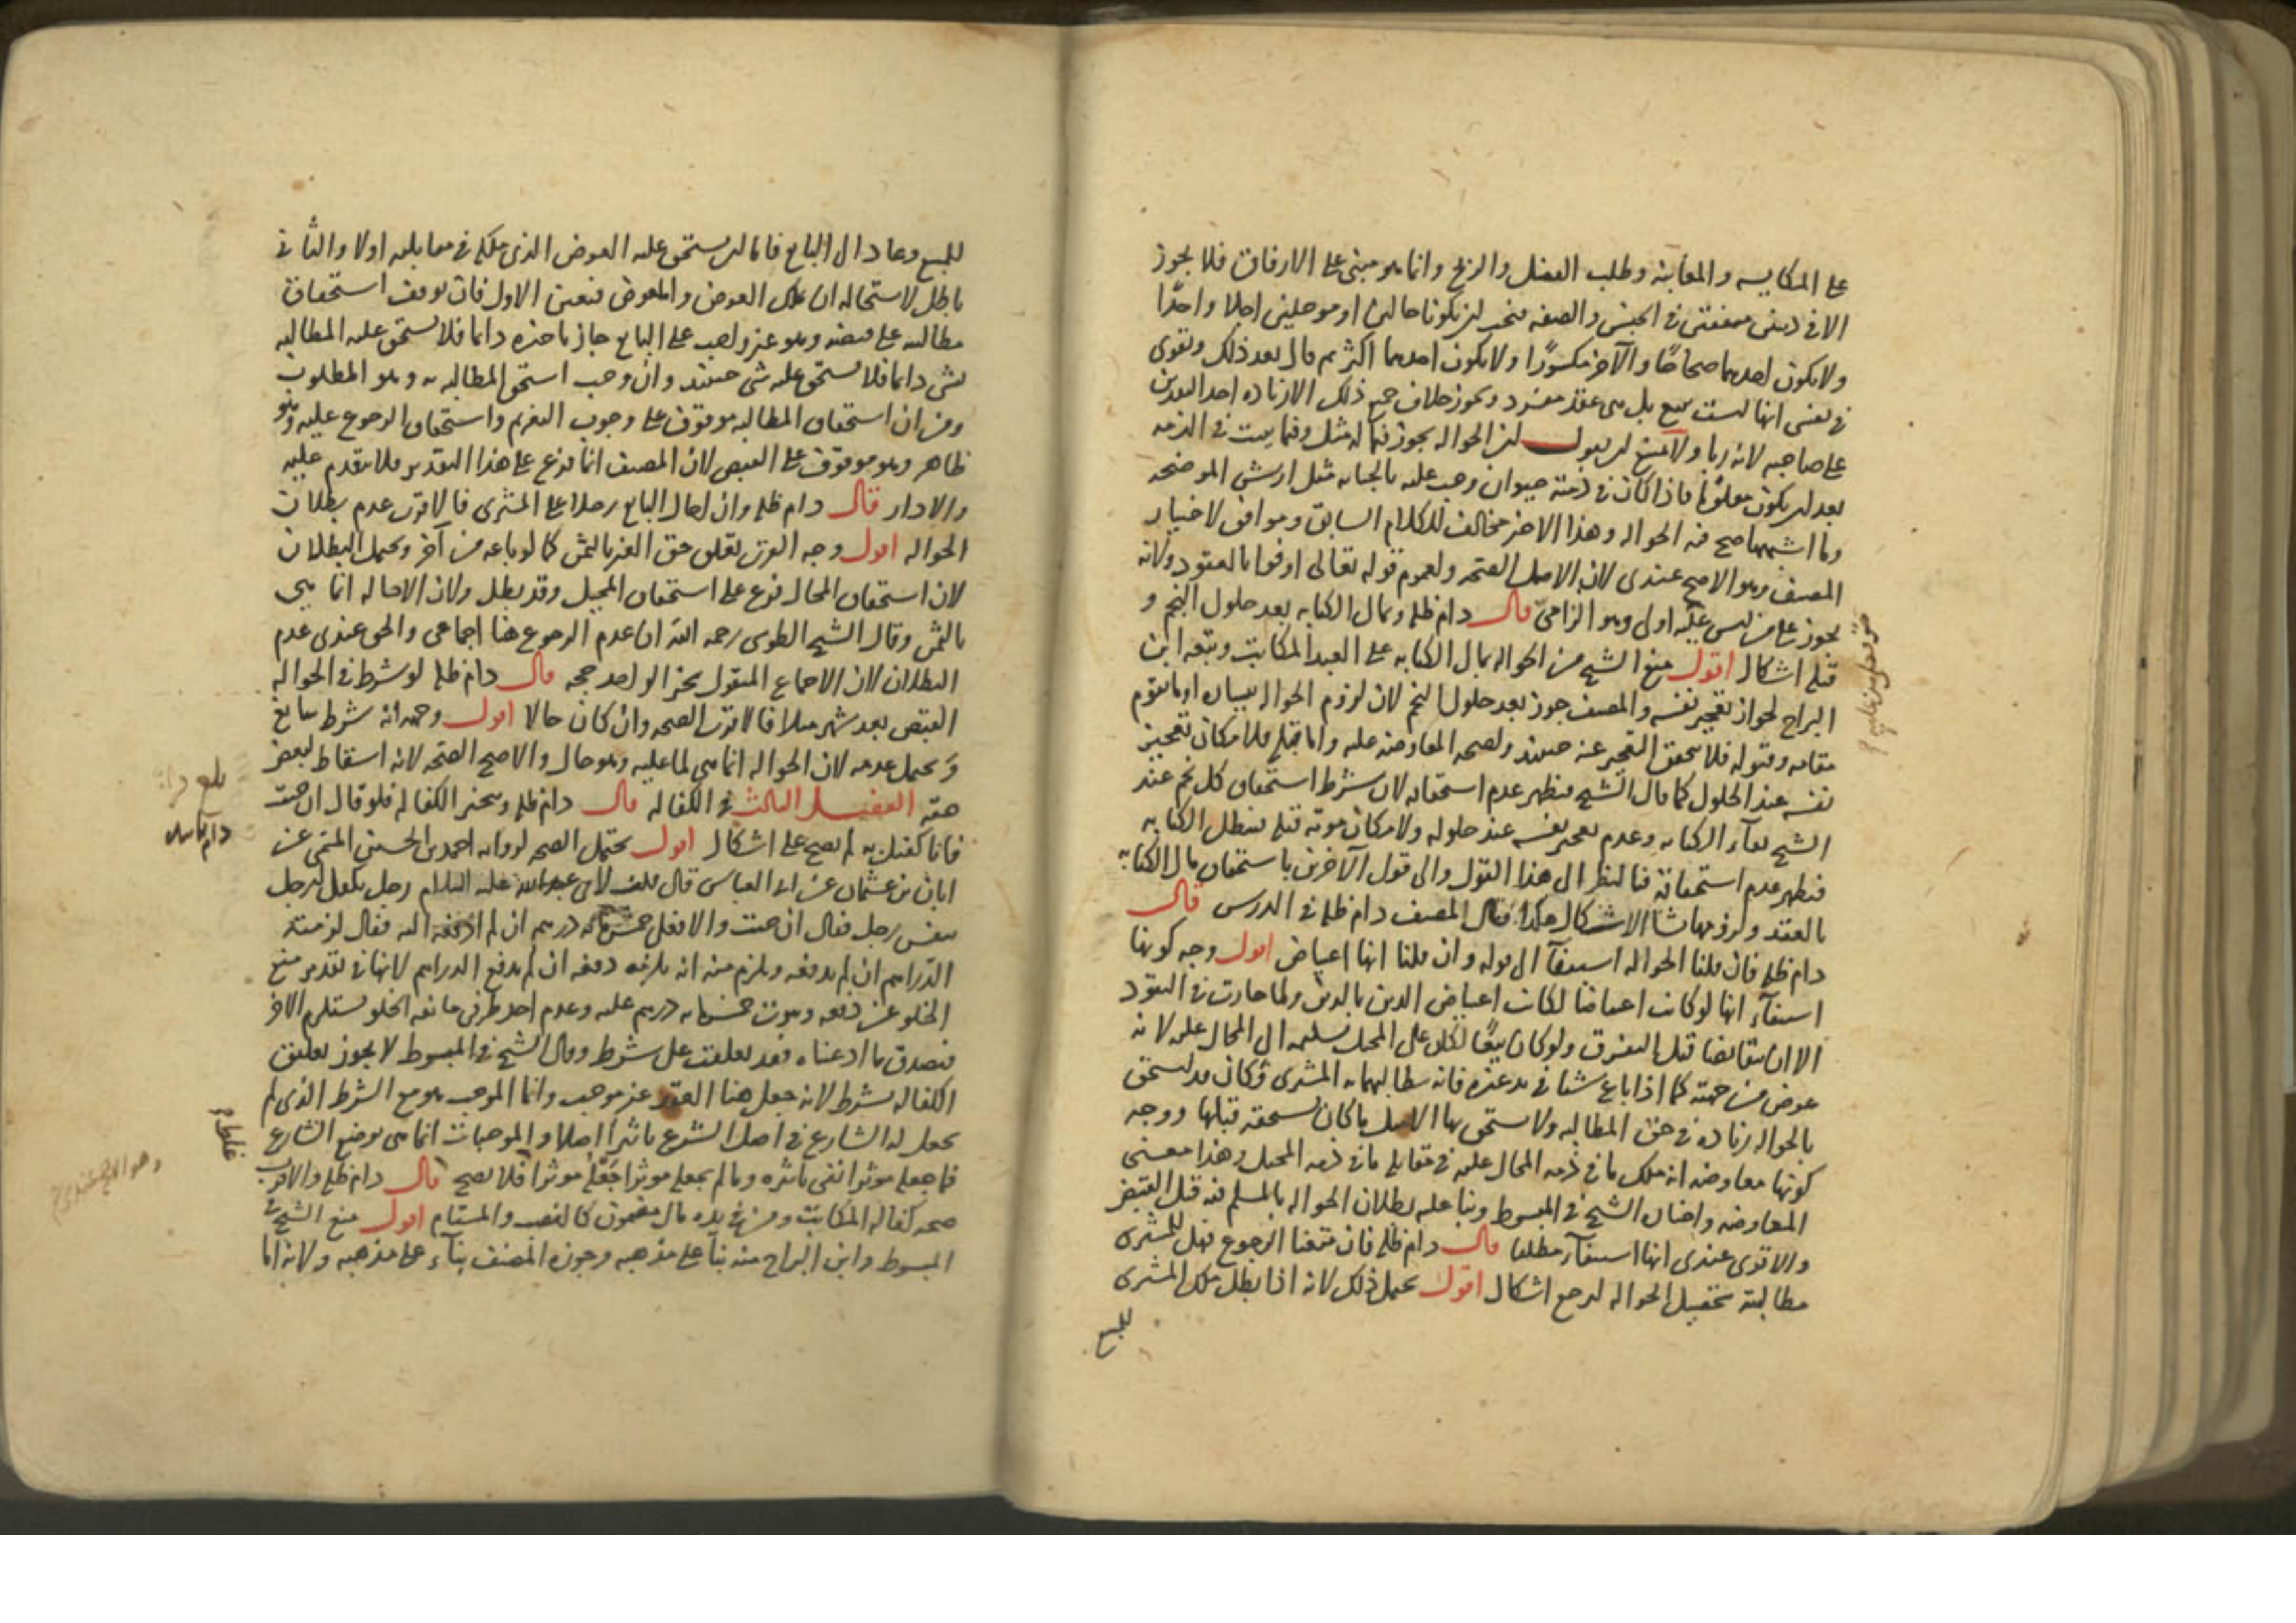 على المكايسه والمغابنه وطلب الفضل والربح وانما هو مبنى على الارفاق فلا يجوز
الا فى دينين متفقين فى الجنس والصفه فيجب ان يكونا حالين او موجلين اجلا واحدا
ولا يكون احدهما صحاحا والآخر مكسورا ولا يكون احدهما اكثر ثم قال بعد ذلك ويقوى
فى نفسى انها ليست ببيع بل هى عقد منفرد ويجوز خلاف جميع ذلك الا زياده احد القدرين
على صاحبه لانه ربا ولا يمتنع ان يقول ان الحواله يجوز فيما له مثل وفيما يثبت فى الذمه
بعد ان يكون معلوما فاذا كان فى ذمته حيوان وجب عليه بالجنايه مثل ارش الموضحه
وما اشبهها صح فيه الحواله وهذا الاخير مخالف للكلام السابق وموافق لاختيار
المصنف وهو الاصح عندى لان الاصل الصحه ولعموم قوله تعالى اوفوا بالعقود ولانه
يجوز على من ليس عليه اولى وهو الزامى قال دام ظله وبمال الكتابه بعد حلول النجم و
قبله اشكال اقول منع الشيخ من الحواله بمال الكتابه على العبد المكاتب وتبعه ابن
البراج لجواز تعجيز نفسه والمصنف جوز بعد حلول النجم لان لزوم الحواله بضمان او ما يقوم
مقامه وقبوله فلا يتحقق التعجيز عنه حينئذ ولصحه المعاوضه عليه واما قبله فلامكان تعجيز
نفسه عند الحلول كما قال الشيخ فيظهر عدم استحقاقه لان شرط استحقاق كل نجم عند
الشيخ بقآء الكتابه وعدم تعجيز نفسه عند حلوله ولامكان موته قبله فيبطل الكتابه
فيظهر عدم استحقاقه فبالنظر الى هذا القول والى قول الآخرين باستحقاق مال الكتابه
بالعقد ولزومها نشا الاشكال هكذا قال المصنف دام ظله فى الدرس قال
دام ظله فان قلنا الحواله استيفآ الى قوله وان قلنا انها اعتياض اقول وجه كونها
استيفآء انها لو كانت اعتياضا لكانت اعتياض الدين بالدين ولما جازت فى النقود
الا ان يتقابضا قبل التفرق ولو كان بيعا لكان على المحيل تسليمه الى المحال عليه لانه
عوض من جهته كما اذا باع شيئا فى يد غيره فانه يطالبهما به المشترى وكان قد يستحق
بالحواله زياده فى حق المطالبه ولا يستحق بها الاصل ما كان يستحقه قبلها ووجه
كونها معاوضه انه ملك ما فى ذمه المحال عليه فى مقابله ما فى ذمه المحيل وهذا معنى
المعاوضه واختار الشيخ فى المبسوط وبنا عليه بطلان الحواله بالمسلم فيه قبل القبض
والاقوى عندى انها استيفآء مطلقا قال دام ظله فان منعنا الرجوع فهل للمشترى
مطالبته بتحصيل الحواله ليرجع اشكال اقول يحتمل ذلك لانه اذا بطل ملك المشترى
للمبيع
للمبيع وعاد الى البايع فاما ان يستحق عليه العوض الذى ملكه فى مقابلته اولا والثانى
باطل لاستحاله ان يملك العوض والمعوض فتعين الاول فان توقف استحقاق
مطالبته على قبضه وهو غير واجب على البايع جاز تاخيره دائما فلا يستحق عليه المطالبه
بشى دائما فلا يستحق عليه شى حينئذ وان وجب استحق المطالبه به وهو المطلوب
ومن ان استحقاق المطالبه موقوف على وجوب الغرم واستحقاق الرجوع عليه وهو
ظاهر وهو موقوف على القبض لان المصنف انما فرع على هذا التقدير فلا يتقدم عليه
والا دار قال دام ظله وان احال البايع رجلا على المشترى فالاقرب عدم بطلان
الحواله اقول وجه القرب تعلق حق الغير بالثمن كما لو باعه من آخر ويحتمل البطلان
لان استحقاق المحال فرع على استحقاق المحيل وقد بطل ولان الاحاله انما هى
بالثمن وقال الشيخ الطوسى رحمه الله ان عدم الرجوع هنا اجماعى والحق عندى عدم
البطلان لان الاجماع المنقول بخبر الواحد حجه قال دام ظله لو شرط فى الحواله
القبض بعد شهر مثلا فالاقرب الصحه وان كان حالا اقول وجهه انه شرط سايغ
ويحتمل عدمه لان الحواله انما هى لما عليه وهو حال والاصح الصحه لانه اسقاط لبعض
حقه الفصل الثالث فى الكفاله قال دام ظله وتنجيز الكفاله فلو قال ان جئت
فانا كفيل به لم يصح على اشكال اقول يحتمل الصحه لروايه احمد بن الحسن الميثمى عن
ابان بن عثمان عن ابى العباس قال قلت لابى عبد الله عليه السلام رجل تكفل لرجل
بنفس رجل فقال ان جئت والا فعلى خمسمائه درهم ان لم ادفعه اليه فقال لزمته
الدراهم ان لم يدفعه ويلزم منه انه يلزمه دفعه ان لم يدفع الدراهم لانها فى تقدير منع
الخلو عن دفعه وثبوت خمسمايه درهم عليه وعدم احد طرفى مانعه الخلو يستلزم الاخر
فيصدق ما ادعيناه فقد تعلقت على شرط وقال الشيخ فى المبسوط لا يجوز تعليق
الكفاله بشرط لانه جعل هنا العقد غير موجب وانما الموجب هو مع الشرط الذى لم
يجعل له الشارع فى اصل الشرع تاثيرا اصلا والموجبات انما هى بوضع الشارع
فما جعله موثرا انتفى تاثيره وما لم يجعله موثرا جعله موثرا فلا يصح قال دام ظله والاقرب
صحه كفاله المكاتب ومن فى يده مال مضمون كالغصب والمستام اقول منع الشيخ فى
المبسوط وابن البراج منه بنآء على مذهبه وجوزه المصنف بنآء على مذهبه ولانه اما